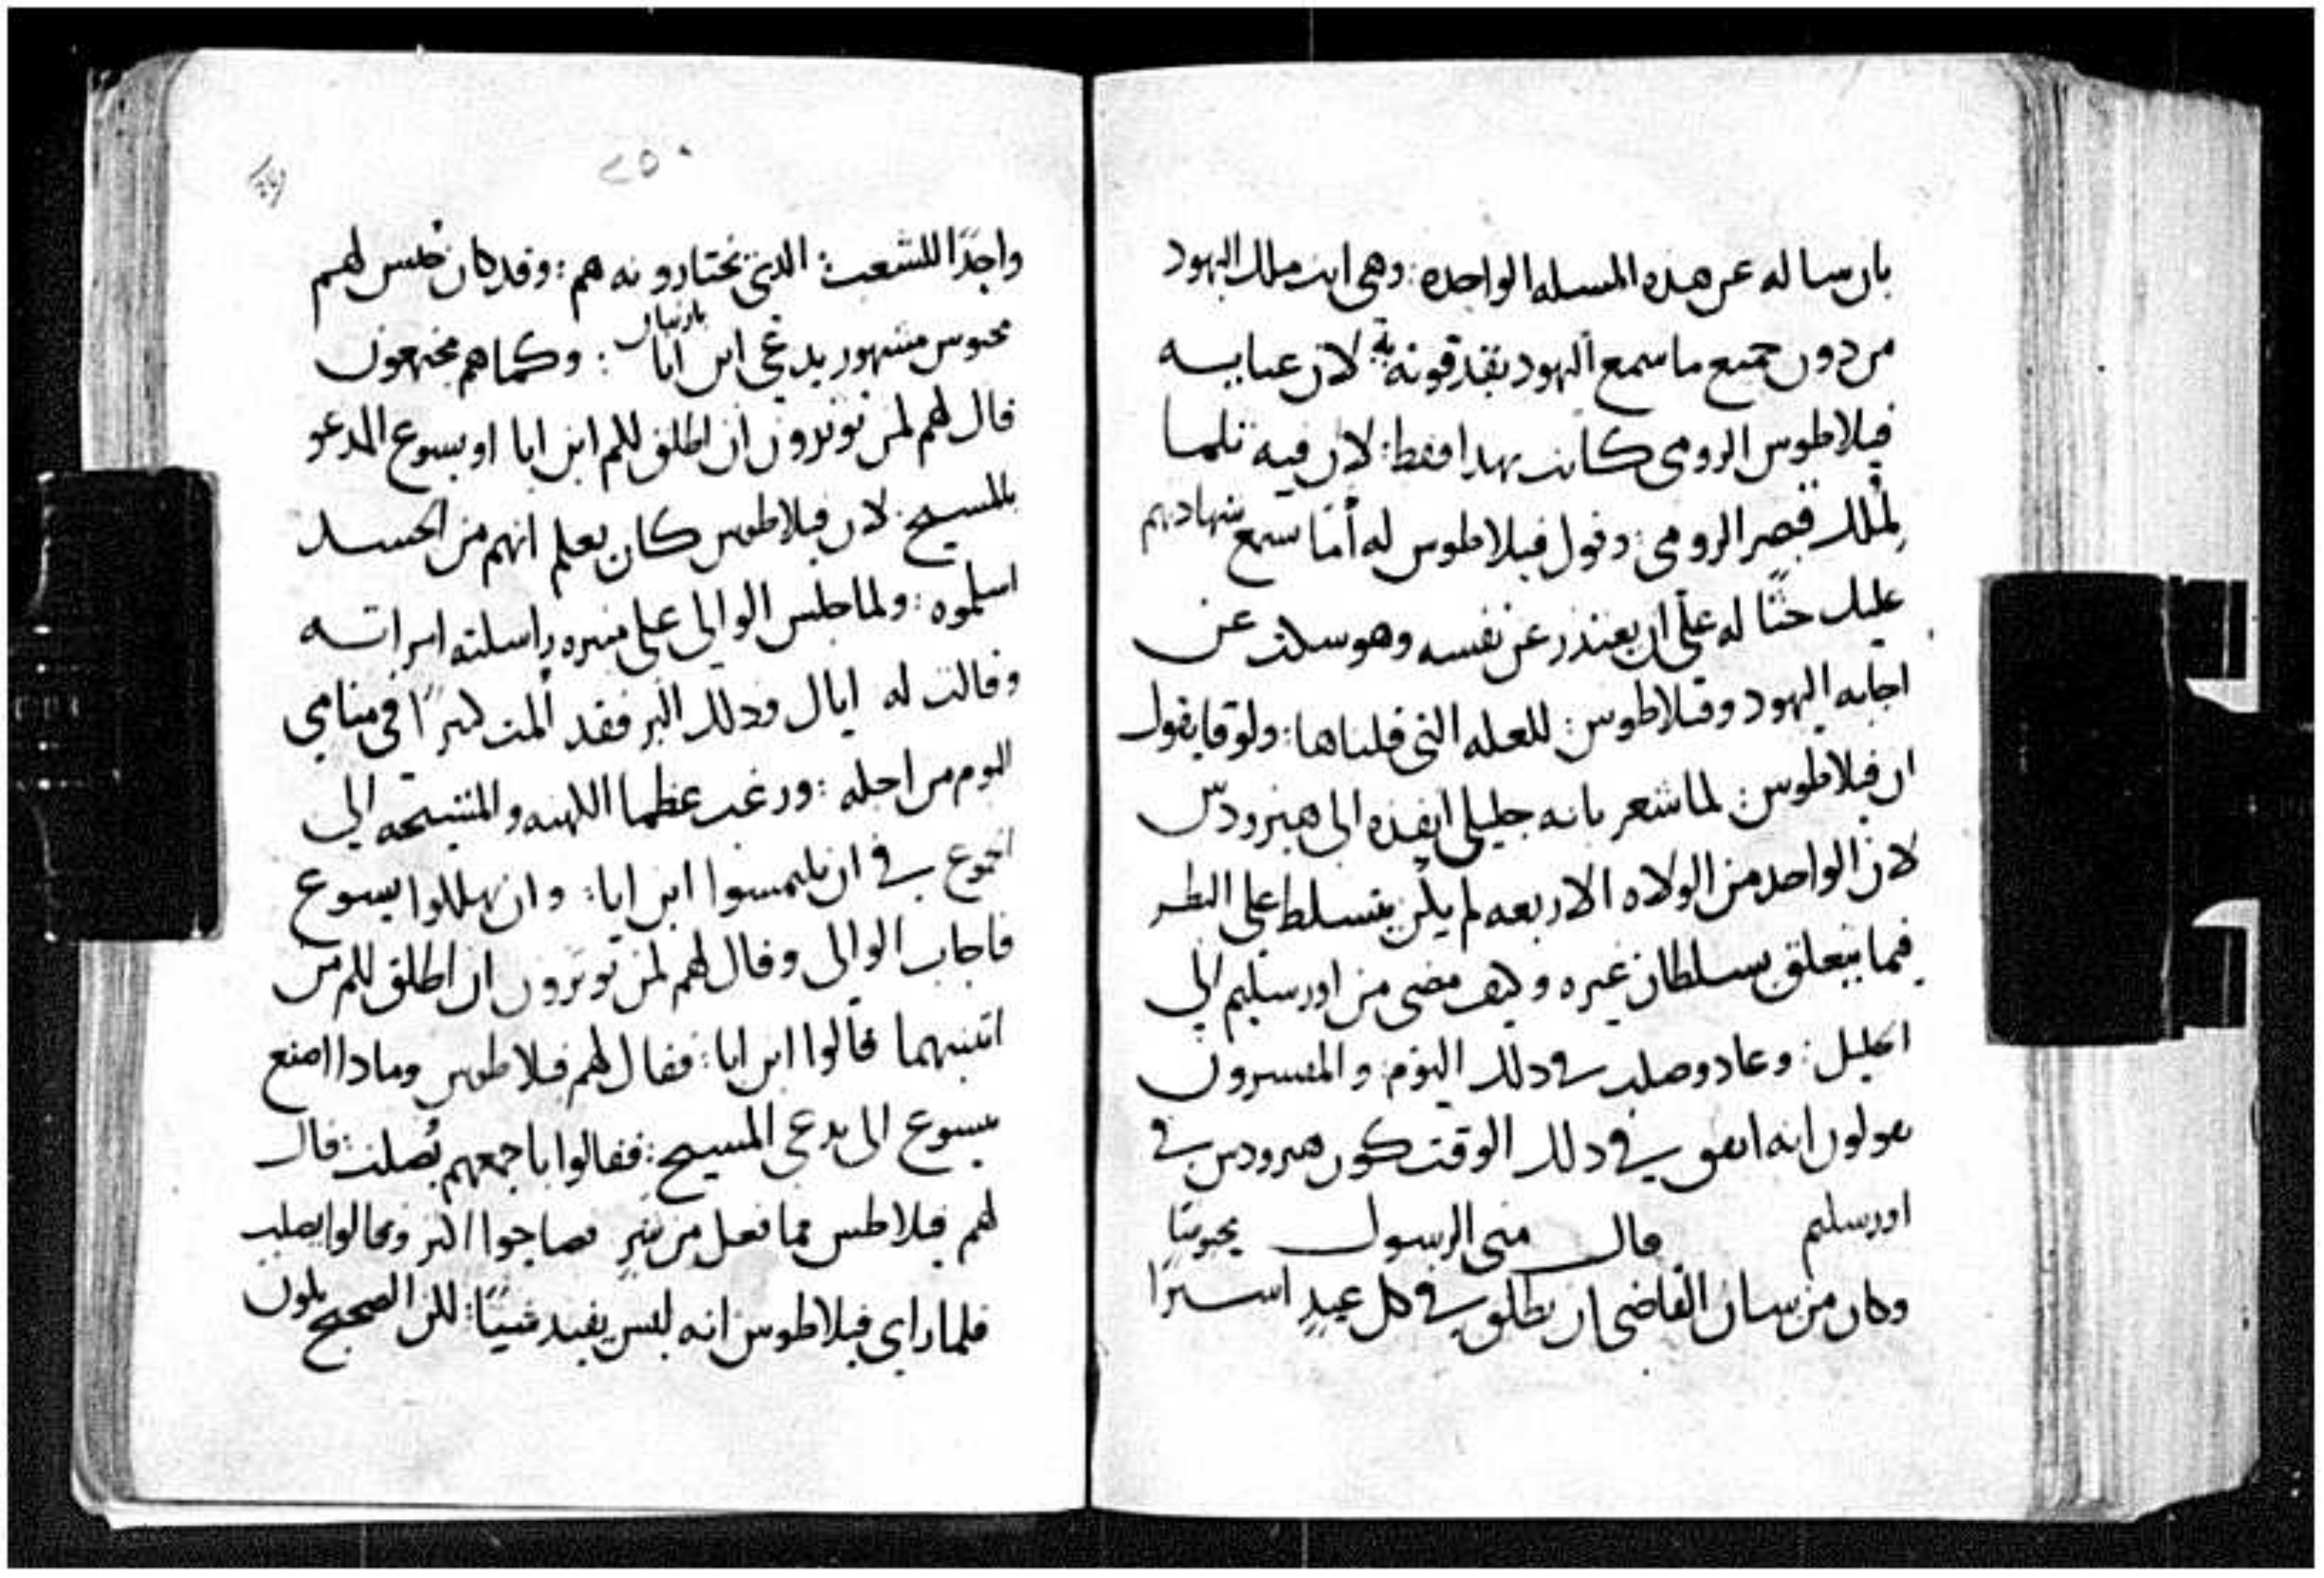 بان ساله عن هذه المسله الواحده: وهى انت ملك اليهود
من دون جميع ما سمع اليهود يقذقونه به لان عنايسه
فيلاطوس الرومى كانت بهدا فقط: لان فيه تلمسا
لملك قيصر الرومى: وقول فيلاطوس له أما سمع شهادتهم
عليك حثًا له على ان يعتذر عن نفسه وهو سكت عن
اجابه اليهود وفيلاطوس: للعله التى قلناها: ولوقا يقول
ان فيلاطوس: لما شعر بانه جليلى انفذه الى هيرودس
لان الواحد من الولاه الاربعه لم يكن يتسلط على النظر
فيما يتعلق بسلطان غيره وكيف مضى من اورسليم الى
الجليل: وعاد وصلب فى دلك اليوم: والمفسرون
يقولون انه اتفق فى دلك الوقت كون هيرودس فى
اورسليم قال متى الرسول يحبوسًا
وكان من سان القاضى ان يطلق فى كل عيدٍ اسيرًا
٢٥٠
واحدًا للشعب: الدى يختارونه هم: وقد كان حبس لهم
محبوس مشهور يدعى ابن ابا باربنان: وكما هم مجتمعون
قال لهم لمن توثرون ان اطلق لكم ابن ابا او يسوع المدعو
بالمسيح: لان فيلاطوس كان يعلم انهم من الحسد
اسلموه: ولما جلس الوالى على منبره راسلته امراته
وقالت له اياك ودلك البر فقد ألمت كثيرًا فى منامى
اليوم من اجله: ورغب عظما الكهنه والمشيخه الى
الجموع فى ان يلتمسوا ابن ابا: وان يهلكوا يسوع
فاجاب الوالى وقال لهم لمن توثرون ان اطلق لكم من
اثنيهما قالوا ابن ابا: فقال لهم فيلاطوس وماداا صنع
بيسوع الى يدعى المسيح: فقالوا باجمعهم يُصلب: قال
لهم فيلاطس مما فعل من شرٍ فصاحوا اكثر وقالوا يصلب
فلما راى فيلاطوس انه ليس يفيد شيئًا: لكن الضجيج يكون